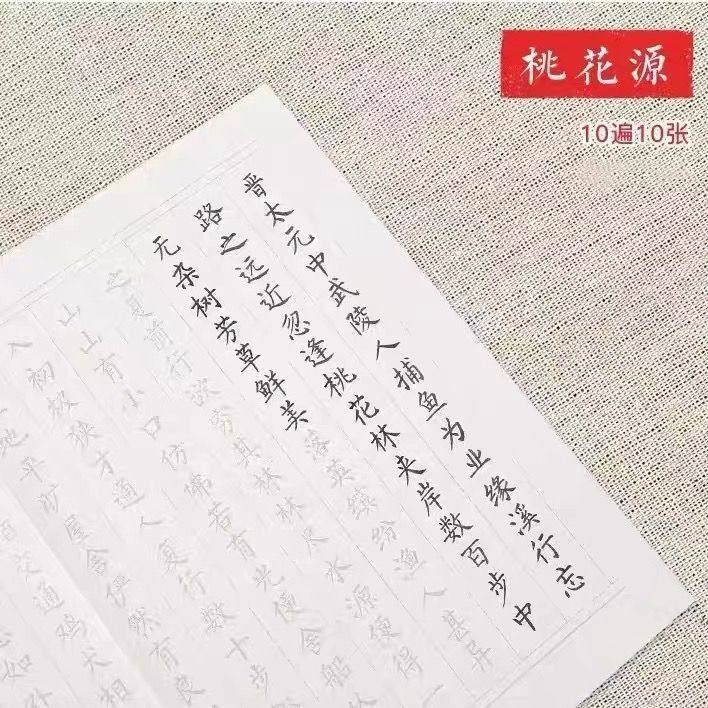 桃花源
10遍10张
晋太元中武陵人捕鱼为业缘溪行忘
路之远近忽逢桃花林夹岸数百步中
无杂树芳草鲜美落英缤纷渔人甚异
之复前行欲穷其林林尽水源便得一
山山有小口仿佛若有光便舍船从
入初极狭才通人复行数十步
地平旷屋舍俨然有良
交通鸡犬相
如外